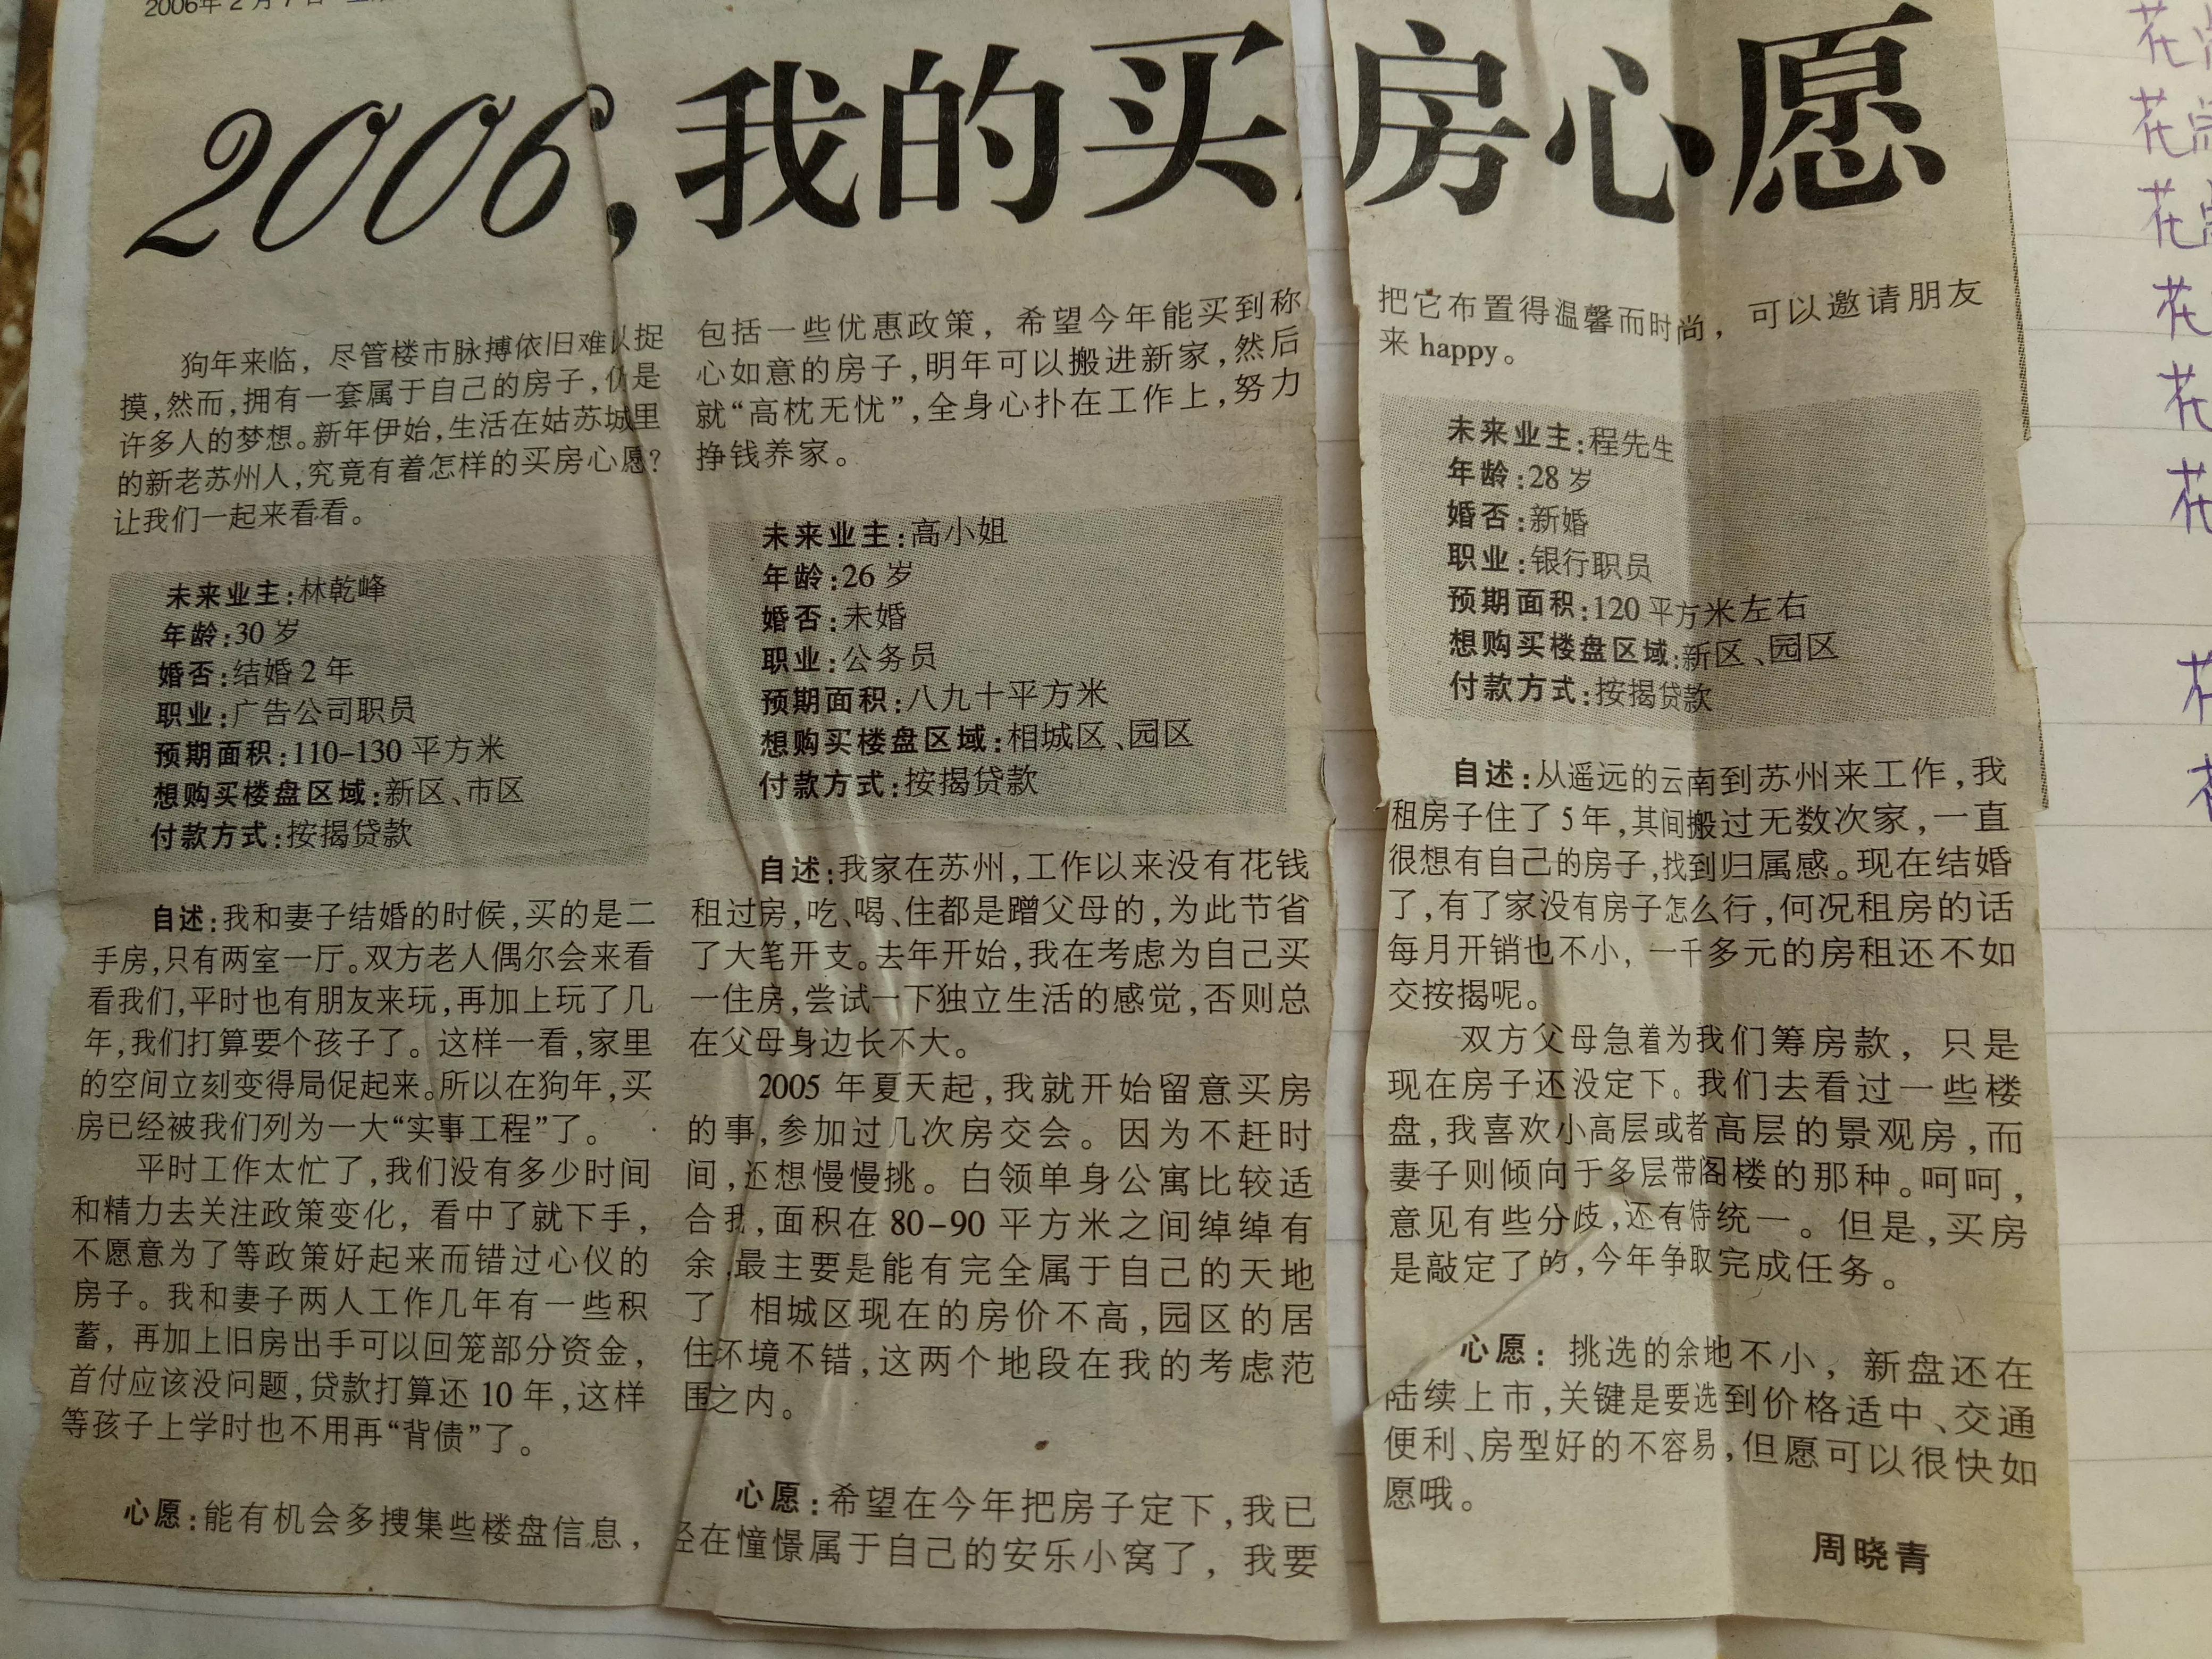 2006年2月7日
2006,我的买房心愿
狗年来临，尽管楼市脉搏依旧难以捉
摸,然而,拥有一套属于自己的房子,仍是
许多人的梦想。新年伊始,生活在姑苏城里
的新老苏州人,究竟有着怎样的买房心愿?
让我们一起来看看。
未来业主:林乾峰
年龄:30岁
婚否:结婚2年
职业:广告公司职员
预期面积:110-130平方米
想购买楼盘区域:新区、市区
付款方式:按揭贷款
自述:我和妻子结婚的时候,买的是二
手房,只有两室一厅。双方老人偶尔会来看
看我们,平时也有朋友来玩,再加上玩了几
年,我们打算要个孩子了。这样一看,家里
的空间立刻变得局促起来。所以在狗年,买
房已经被我们列为一大“实事工程”了。
平时工作太忙了,我们没有多少时间
和精力去关注政策变化，看中了就下手,
不愿意为了等政策好起来而错过心仪的
房子。我和妻子两人工作几年有一些积
蓄，再加上旧房出手可以回笼部分资金,
首付应该没问题,贷款打算还10年,这样
等孩子上学时也不用再“背债”了。
心愿:能有机会多搜集些楼盘信息，
包括一些优惠政策，希望今年能买到称
心如意的房子,明年可以搬进新家,然后
就“高枕无忧”,全身心扑在工作上,努力
挣钱养家。
未来业主:高小姐
年龄:26岁
婚否:未婚
职业:公务员
预期面积:八九十平方米
想购买楼盘区域:相城区、园区
付款方式:按揭贷款
自述:我家在苏州,工作以来没有花钱
租过房,吃、喝、住都是蹭父母的,为此节省
了大笔开支。去年开始,我在考虑为自己买
一住房,尝试一下独立生活的感觉,否则总
在父母身边长不大。
2005年夏天起,我就开始留意买房
的事,参加过几次房交会。因为不赶时
间,还想慢慢挑。白领单身公寓比较适
合我,面积在80-90平方米之间绰绰有
余,最主要是能有完全属于自己的天地
了 相城区现在的房价不高,园区的居
住环境不错,这两个地段在我的考虑范
围之内。
心愿:希望在今年把房子定下,我已
经在憧憬属于自己的安乐小窝了，我要
把它布置得温馨而时尚，可以邀请朋友
来happy。
未来业主:程先生
年龄:28岁
婚否:新婚
职业:银行职员
预期面积:120平方米左右
想购买楼盘区域:新区、园区
付款方式:按揭贷款
自述:从遥远的云南到苏州来工作,我
租房子住了5年,其间搬过无数次家,一直
很想有自己的房子,找到归属感。现在结婚
了,有了家没有房子怎么行,何况租房的话
每月开销也不小,一千多元的房租还不如
交按揭呢。
双方父母急着为我们筹房款，只是
现在房子还没定下。我们去看过一些楼
盘,我喜欢小高层或者高层的景观房,而
妻子则倾向于多层带阁楼的那种。呵呵,
意见有些分歧,还有待统一。但是,买房
是敲定了的,今年争取完成任务。
心愿：挑选的余地不小，新盘还在
陆续上市,关键是要选到价格适中、交通
便利、房型好的不容易,但愿可以很快如
愿哦。
周晓青
花
花
花
花
花
花